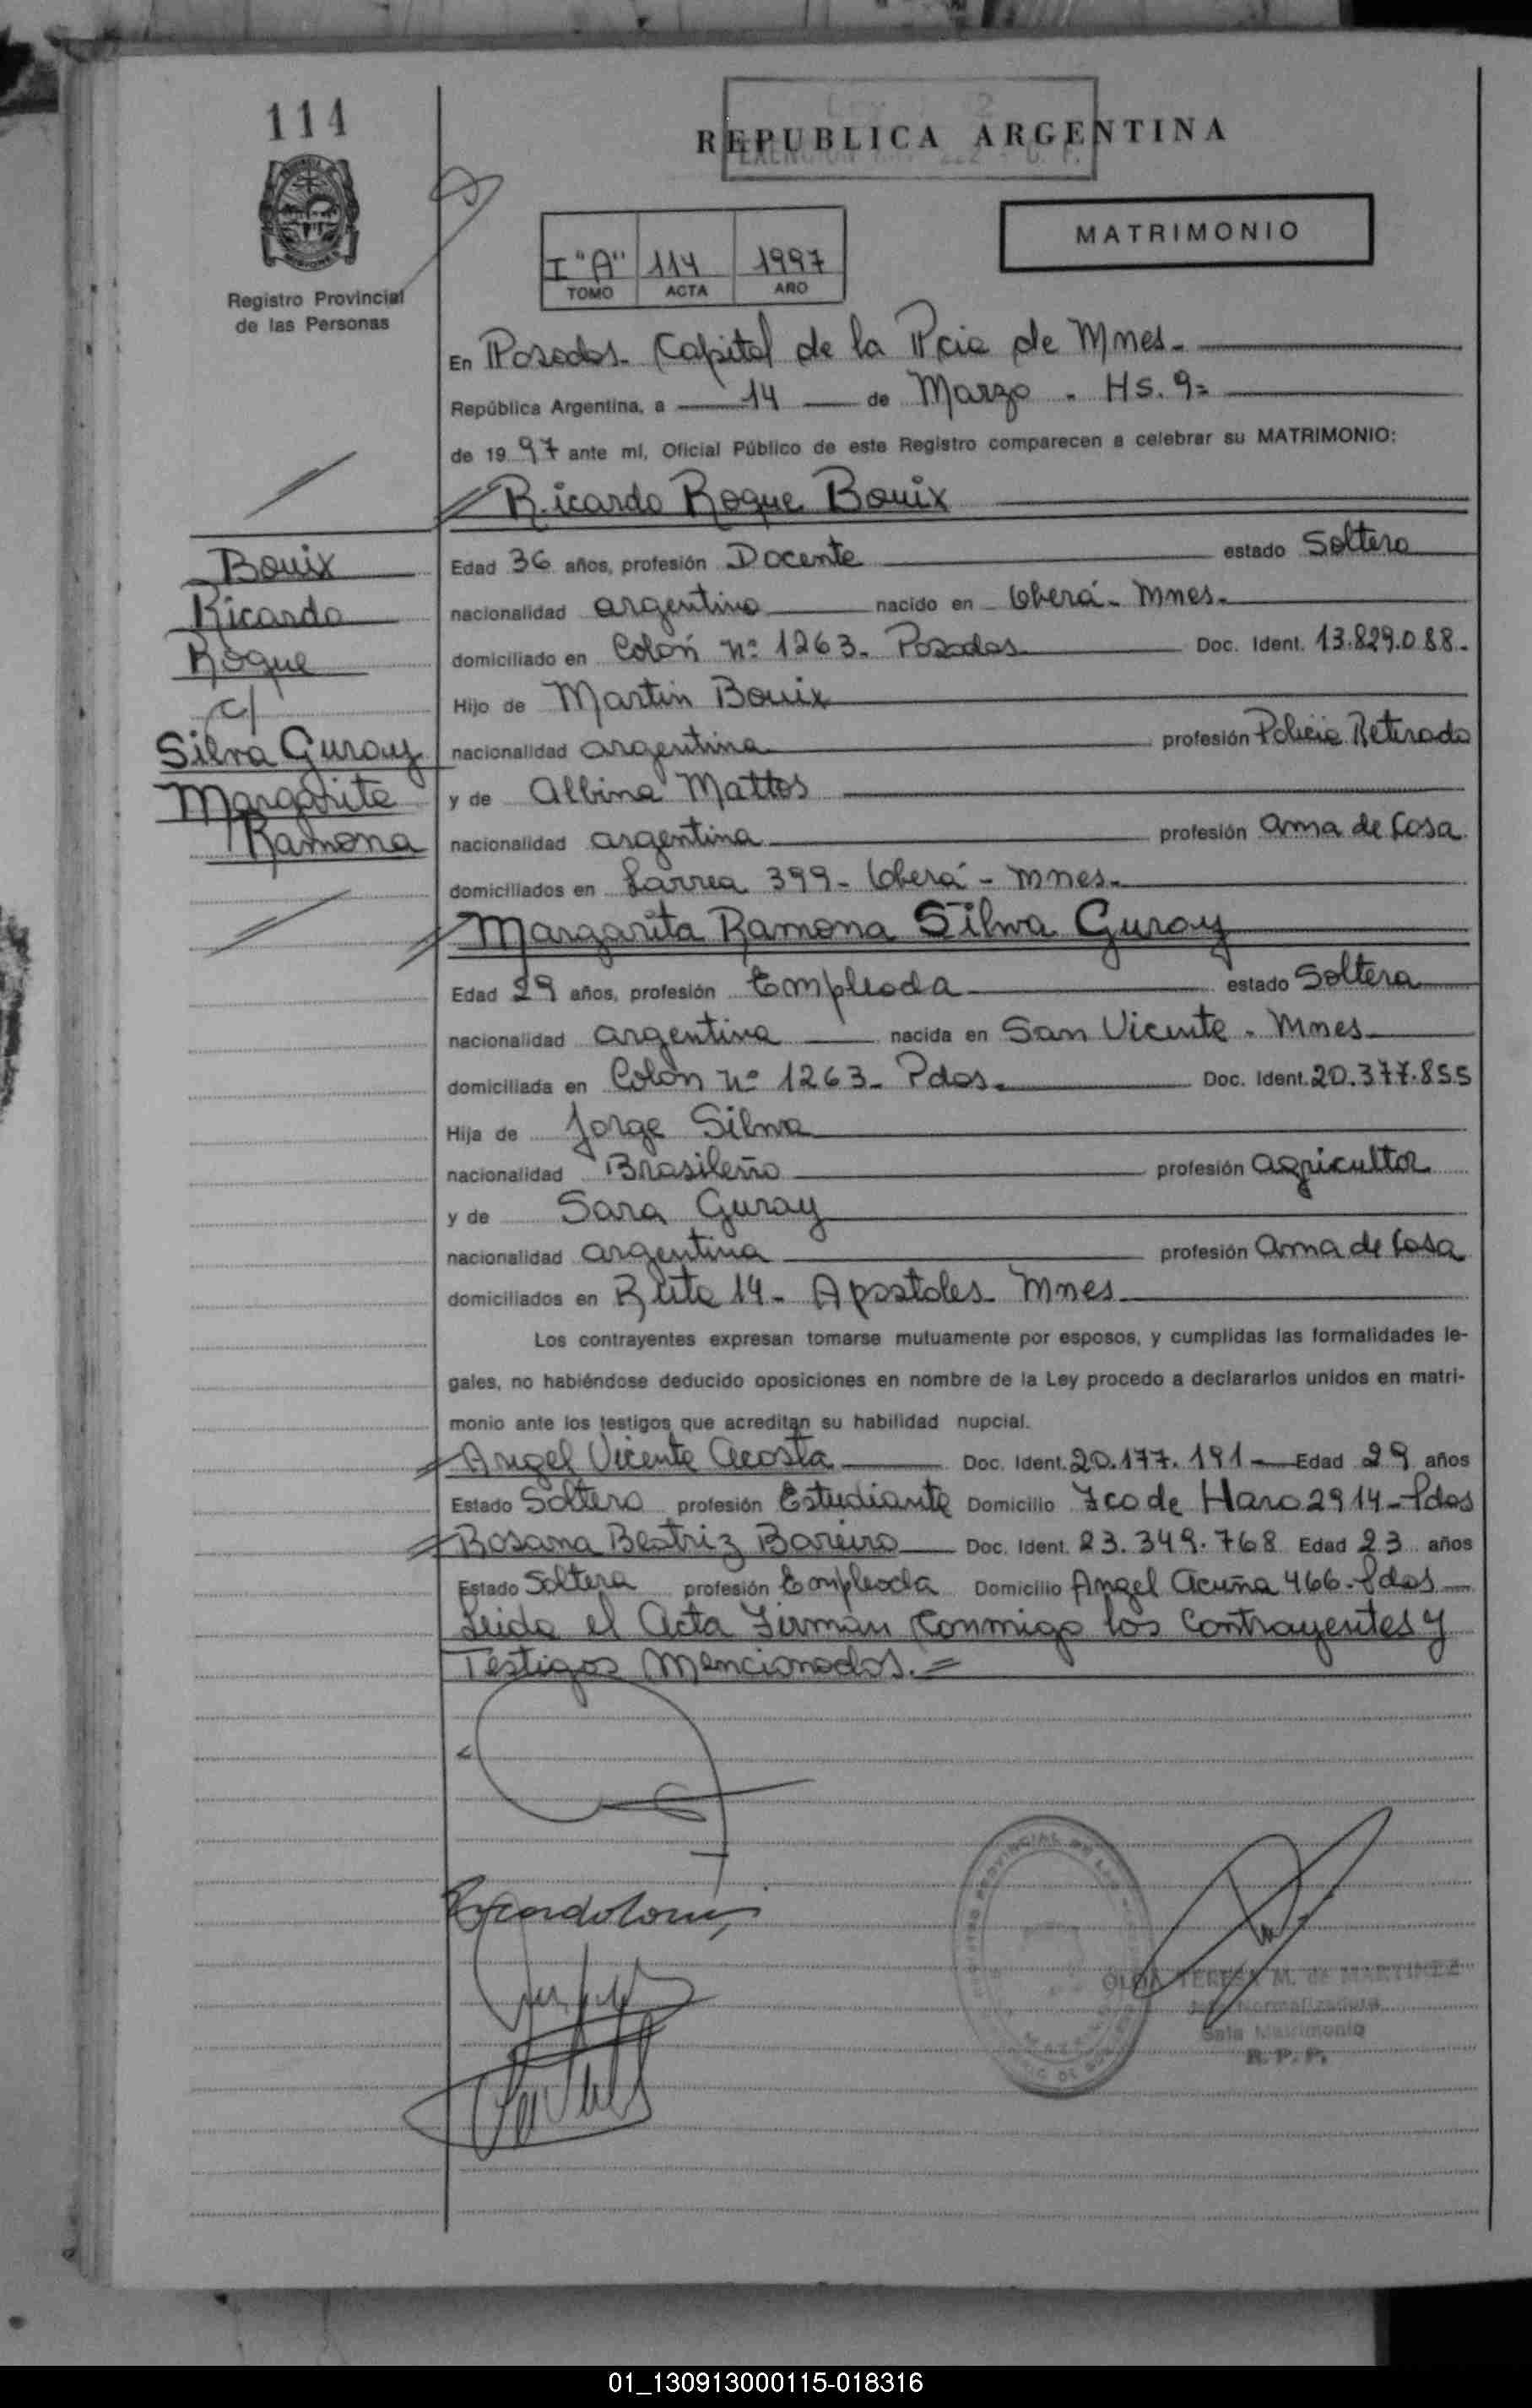 114
REPUBLICA ARGENTINA
MATRIMONIO
I "A" 114 1997
TOMO ACTA AÑO
Registro Provincial
de las Personas
En Posadas. Capital de la Pcia de Mnes.
República Argentina, a 14 de Marzo - Hs. 9=
de 1997 ante mí, Oficial Público de este Registro comparecen a celebrar su MATRIMONIO:
Ricardo Roque Bouix
Bouix
Ricardo
Roque
c/
Silva Guray
Margarita
Ramona
Edad 36 años, profesión Docente estado Soltero
nacionalidad argentino nacido en Oberá - Mnes.
domiciliado en Colón nº 1263. Posadas Doc. Ident. 13.829.088.
Hijo de Martin Bouix
nacionalidad argentina profesión Policia Retirado
y de Albina Mattos
nacionalidad argentina profesión ama de Casa
domiciliados en Larrea 399 - Oberá - Mnes.
Margarita Ramona Silva Guray
Edad 29 años, profesión Empleada estado Soltera
nacionalidad argentina nacida en San Vicente - Mnes
domiciliada en Colón nº 1263 - Pdas. Doc. Ident. 20.377.855
Hija de Jorge Silva
nacionalidad Brasileño profesión agricultor
y de Sara Guray
nacionalidad argentina profesión ama de Casa
domiciliados en Ruta 14 - Apostoles - Mnes
Los contrayentes expresan tomarse mutuamente por esposos, y cumplidas las formalidades le-
gales, no habiéndose deducido oposiciones en nombre de la Ley procedo a declararlos unidos en matri-
monio ante los testigos que acreditan su habilidad nupcial.
Angel Vicente Acosta Doc. Ident. 20.177.191 Edad 29 años
Estado Soltero profesión Estudiante Domicilio Fco de Haro 2914 - Pdas
Rosana Beatriz Bareiro Doc. Ident. 23.349.768 Edad 23 años
Estado Soltera profesión Empleada Domicilio Angel Acuña 466 - Pdas
Leida el Acta Firman Conmigo los Contrayentes y
Testigos Mencionados.=
TERESA M. de MARTINEZ
Normalizadora
Sala Matrimonio
R. P. P.
01_130913000115-018316